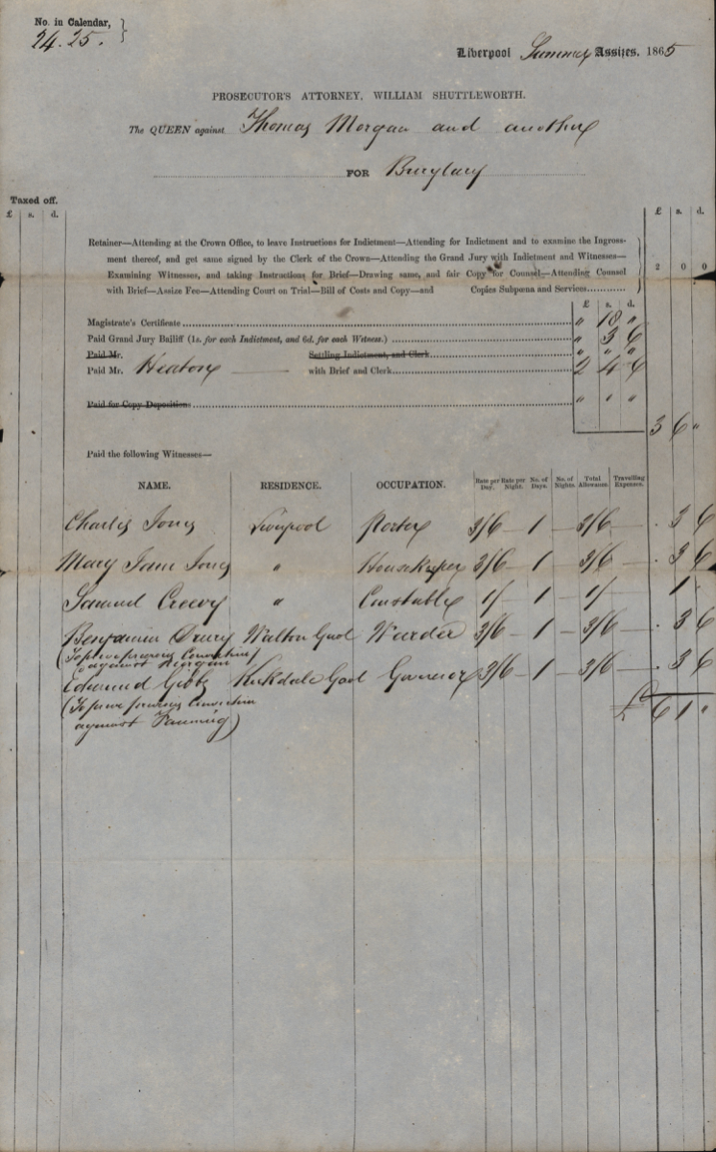 No. in Calendar,
24. 25. }
Liverpool Summer Assizes. 1865
PROSECUTOR'S ATTORNEY, WILLIAM SHUTTLEWORTH.
The QUEEN against Thomas Morgan and another
FOR Burglary
Taxed off.
£ s. d. £ s. d.
Retainer—Attending at the Crown Office, to leave Instructions for Indictment—Attending for Indictment and to examine the Ingross-
ment thereof, and get same signed by the Clerk of the Crown—Attending the Grand Jury with Indictment and Witnesses—
Examining Witnesses, and taking Instructions for Brief—Drawing same, and fair Copy for Counsel—Attending Counsel 2 0 0
with Brief—Assize Fee—Attending Court on Trial—Bill of Costs and Copy—and Copies Subpœna and Services
£ s. d.
Magistrate's Certificate " 18 "
Paid Grand Jury Bailiff (1s. for each Indictment, and 6d. for each Witness.) " 3 6
Paid Mr. Settling Indictment, and Clerk " " "
Paid Mr. Heaton with Brief and Clerk 2 4 6
Paid for Copy Depositions " " "
3 6 "
Paid the following Witnesses—
NAME. RESIDENCE. OCCUPATION. Rate per Day. Rate per Night. No. of Days. No. of Nights. Total Allowance. Travelling Expenses.
Charles Jones Liverpool Porter 3/6 — 1 — 3/6 — . 3 6
Mary Jane Jones " Housekeeper 3/6 — 1 — 3/6 — . 3 6
Samuel Creevy " Constable 1/ 1 — 1/ — 1 .
Benjamin Drury Walton Gaol Warder 3/6 — 1 — 3/6 — . 3 6
(To prove previous Conviction
against Morgan)
Edmund Gibbs Kirkdale Gaol Governor 3/6 — 1 — 3/6 — . 3 6
(To prove previous Conviction £ 6 1 "
against Fanning)